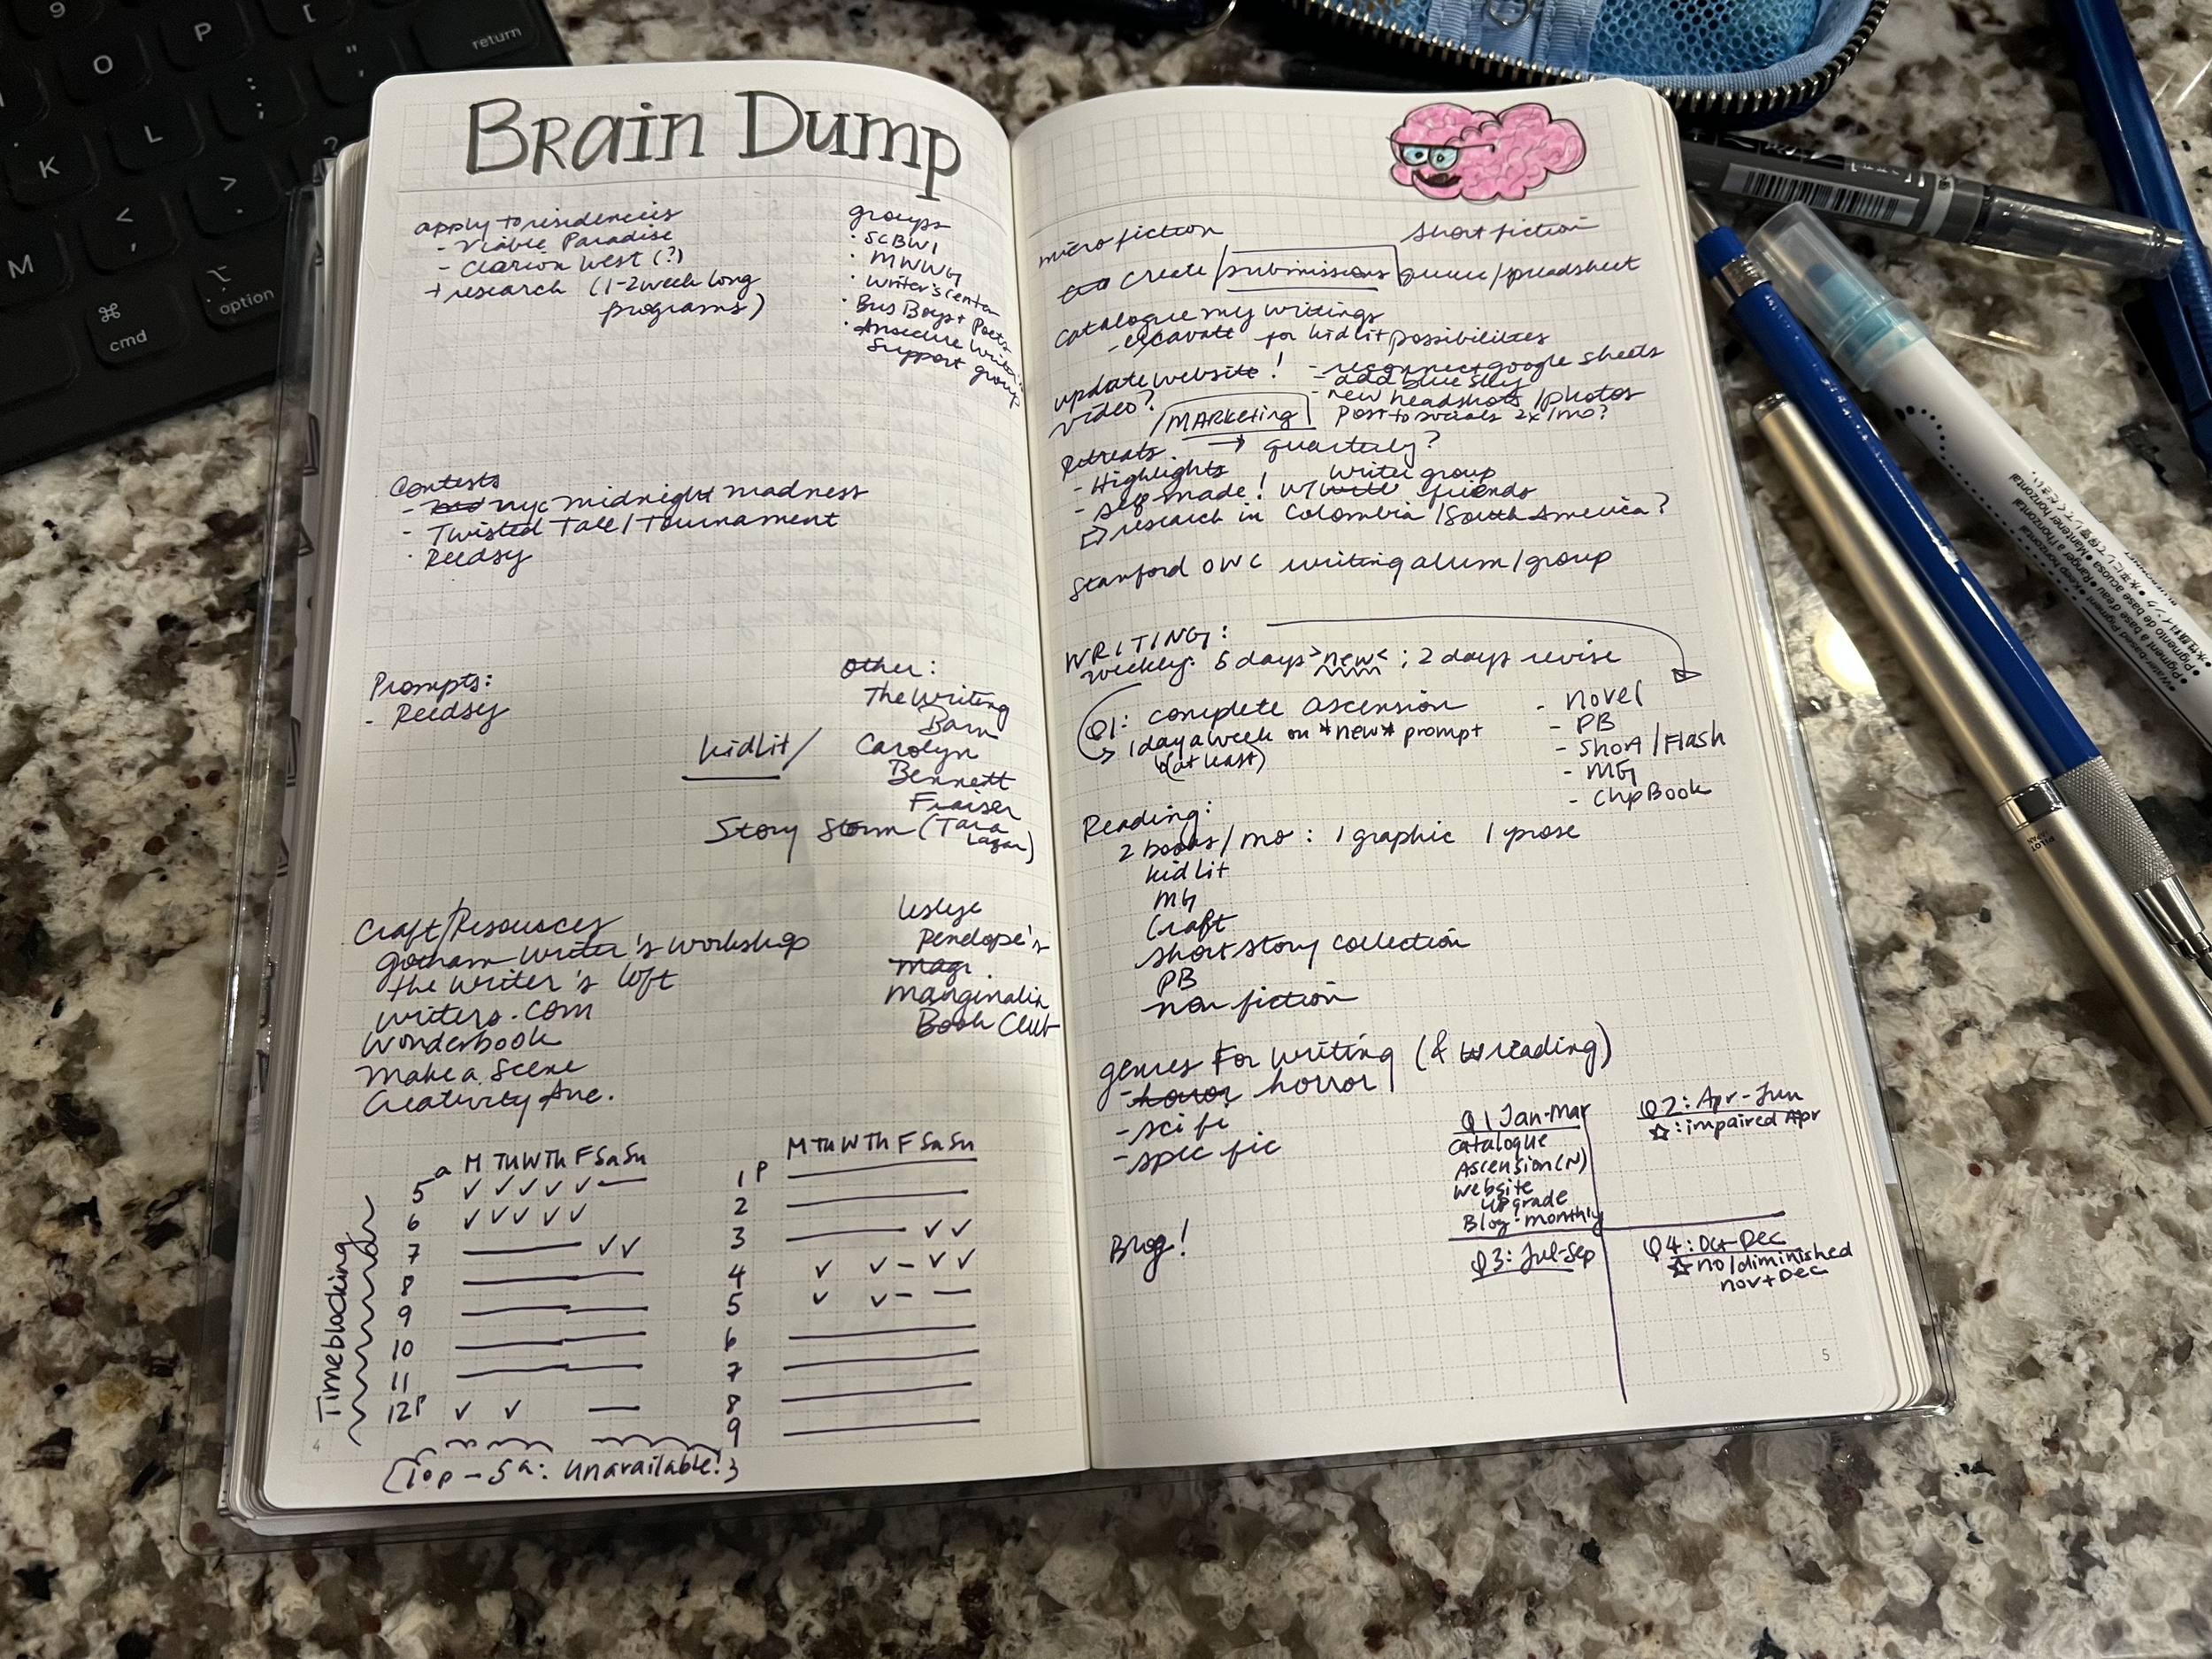 Brain Dump
apply to residencies
- Viable Paradise
- Clarion West (?)
→ research (1-2 week long
programs)
groups
· SCBWI
· MWWG
· Writer's Center
· Bus Boys + Poets
· Writing
Support group
Contests
- NYC midnight madness
- Twisted Tale / Tournament
· Reedsy
Prompts:
- Reedsy
other:
The Writing
Barn
kidlit/
Carolyn
Bennett
Fraiser
Story Storm (Tara
Lazar)
Leslye
Penelope's
magi.
marginalia
Book Club
Craft/Resources
Gotham Writer's Workshop
the writer's loft
writers.com
Wonderbook
Make a Scene
Creativity Ave.
Timeblocking
M Tu W Th F Sa Su
5 a ✓ ✓ ✓ ✓ ✓ —
6 ✓ ✓ ✓ ✓ ✓
7 — ✓ ✓
8 —
9 —
10 —
11 —
12 P ✓ ✓ —
M Tu W Th F Sa Su
1 P —
2 —
3 — ✓ ✓
4 ✓ ✓ – ✓ ✓
5 ✓ ✓ – —
6 —
7 —
8 —
9 —
{10p – 5a: unavailable!}
4
micro fiction
short fiction
create / submissions / queue / spreadsheet
catalogue my writings
- excavate for kidlit possibilities
update website!
- reconnect google sheets
- add blue sky
- new headshots / photos
video?
/MARKETING
Post to socials 2x/mo?
Retreats → quarterly?
- Highlights
- self made! w/ write friends
writer group
→ research in Colombia / South America?
Stanford OWC writing alum / group
WRITING:
weekly: 5 days >new< ; 2 days revise
Q1: complete ascension
→ 1 day a week on *new* prompt
(at least)
- novel
- PB
- Short / Flash
- MG
- ChpBook
Reading:
2 books/mo : 1 graphic 1 prose
kidlit
MG
Craft
short story collection
PB
non fiction
genres for writing (& reading)
- horror horror
- sci fi
- spec fic
Blog!
Q1 Jan-Mar
catalogue
Ascension (N)
website
upgrade
Blog - monthly
Q2: Apr-Jun
☆: impaired Apr
Q3: Jul-Sep
Q4: Oct-Dec
☆ no/diminished
nov + Dec
5
9
O
P
return
L
;
:
"
'
K
>
.
?
<
,
M
⌘
cmd
⌥
option
PILOT
JAPAN
Water-based Pigment • Keep horizontal
Pigment à base d'eau • Ranger à l'horizontal
Pigmento de base acuosa • Mantener horizontal